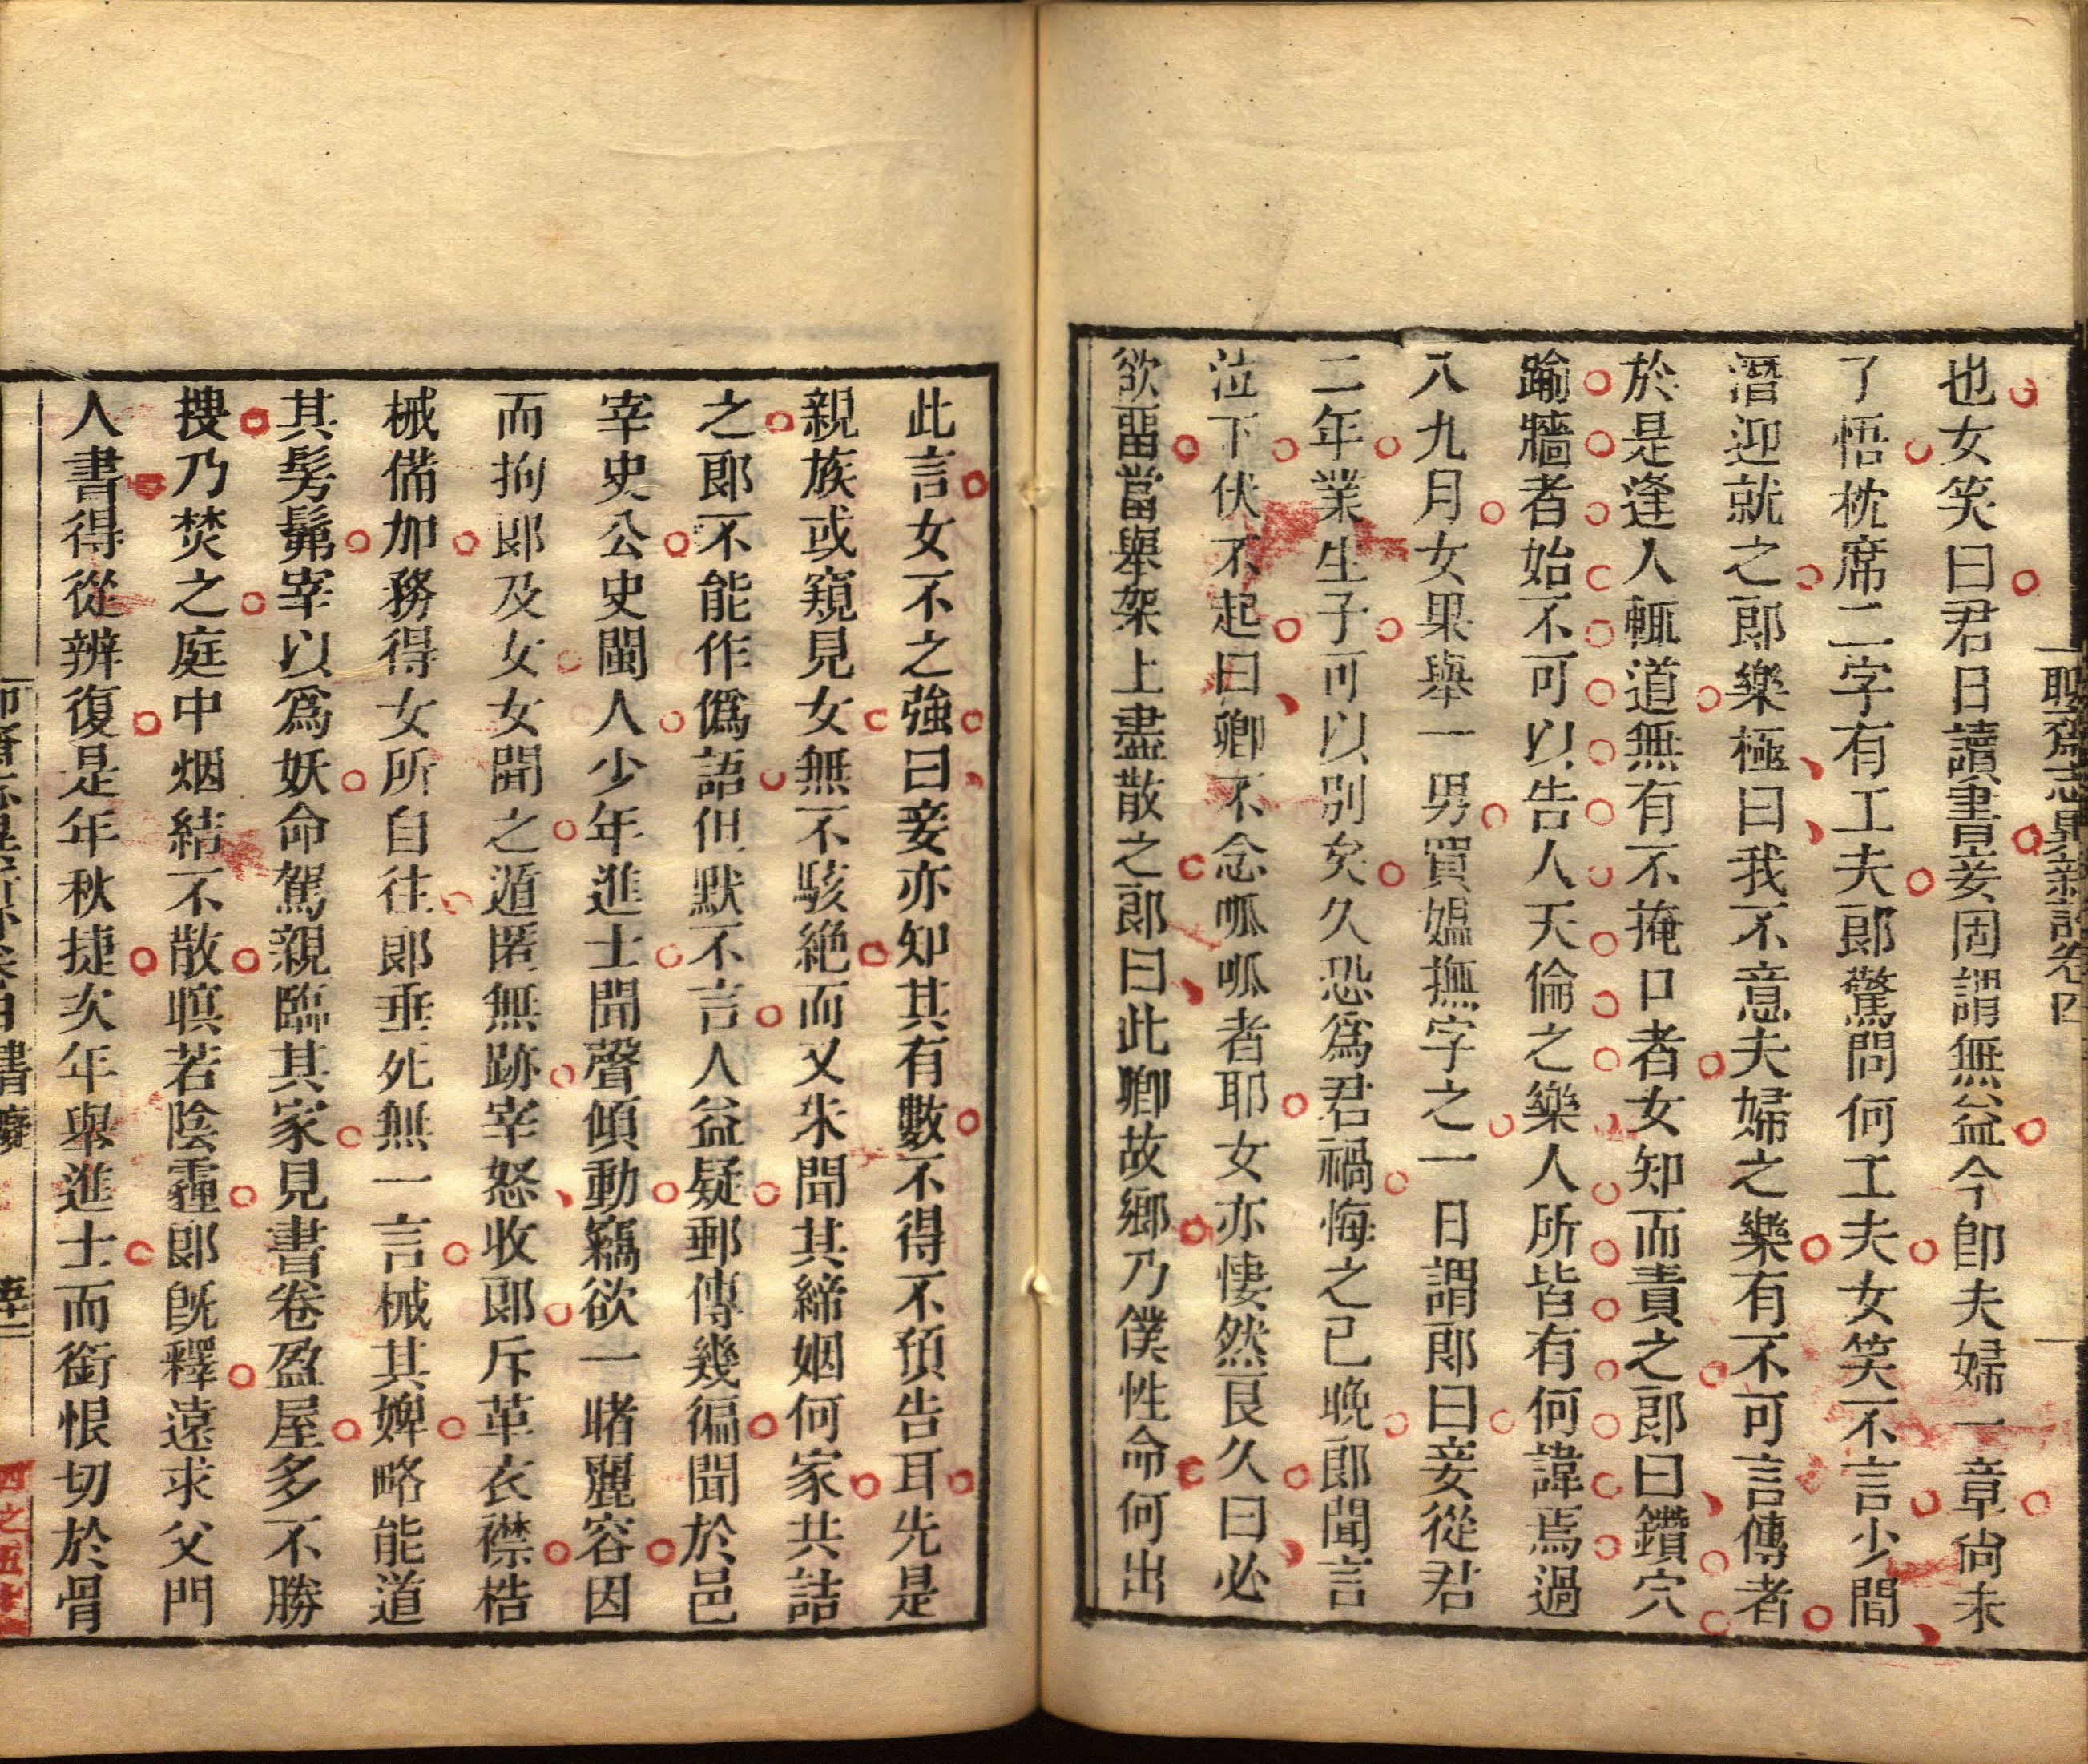 聊齋志異新評卷四
也女笑曰君日讀書妾固謂無益今卽夫婦一章尙未
了悟枕席二字有工夫郎驚問何工夫女笑不言少間
潛迎就之郎樂極曰我不意夫婦之樂有不可言傳者
於是逢人輒道無有不掩口者女知而責之郎曰鑽穴
踰牆者始不可以告人天倫之樂人所皆有何諱焉過
八九月女果舉一男買媼撫字之一日謂郎曰妾從君
二年業生子可以別矣久恐爲君禍悔之已晚郎聞言
泣下伏不起曰卿不念呱呱者耶女亦悽然良久曰必
欲畱當舉架上盡散之郎曰此卿故鄉乃僕性命何出
此言女不之強曰妾亦知其有數不得不預告耳先是
親族或窺見女無不駭絕而又未聞其締姻何家共詰
之郎不能作僞語但默不言人益疑郵傳幾徧聞於邑
宰史公史閩人少年進士聞聲傾動竊欲一睹麗容因
而拘郎及女女聞之遁匿無跡宰怒收郎斥革衣襟梏
械備加務得女所自往郎垂死無一言械其婢略能道
其髣髴宰以爲妖命駕親臨其家見書卷盈屋多不勝
搜乃焚之庭中烟結不散暝若陰霾郎旣釋遠求父門
人書得從辨復是年秋捷次年舉進士而銜恨切於骨
書癡
四之五